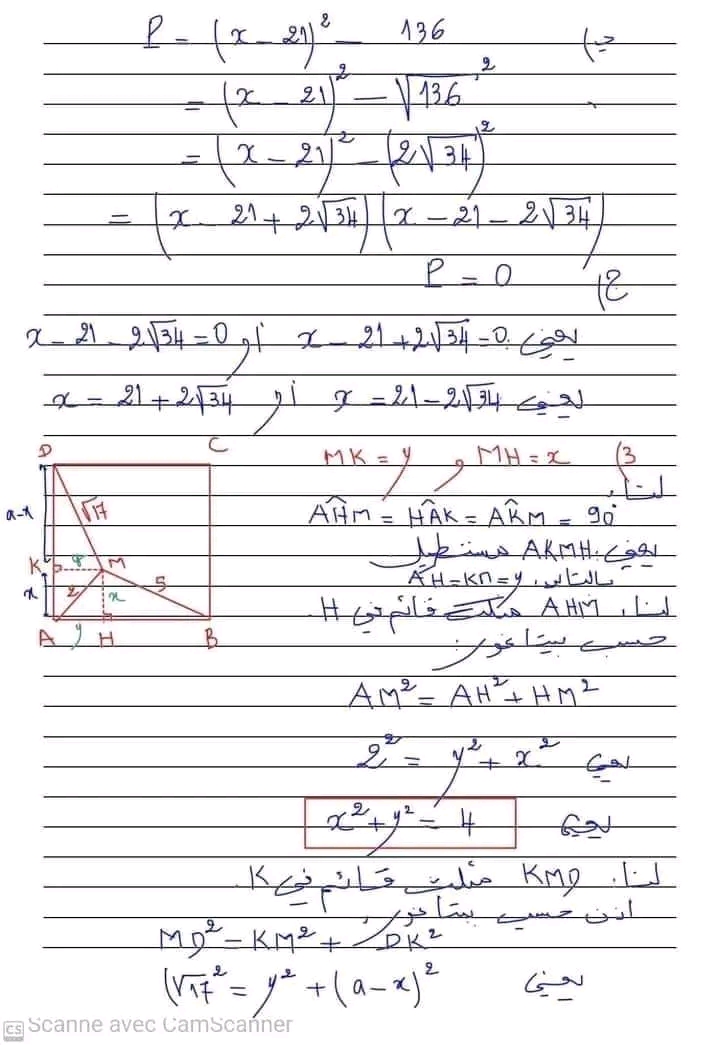 ب) P = (x - 21)² - 136
= (x - 21)² - √136²
= (x - 21)² - (2√34)²
= (x - 21 + 2√34)(x - 21 - 2√34)
ج) P = 0
يعني x - 21 + 2√34 = 0 أو x - 21 - 2√34 = 0
يعني x = 21 - 2√34 أو x = 21 + 2√34
3) MH = x و MK = y
لنا AĤM = HÂK = AK̂M = 90°
يعني AKMH مستطيل
بالتالي AH = KM = y
لنا AHM مثلث قائم في H
حسب بيتاغور:
AM² = AH² + HM²
يعني 2² = y² + x²
يعني x² + y² = 4
لنا KMD مثلث قائم في K.
اذن حسب بيتاغور
MD² = KM² + DK²
يعني (√17² = y² + (a - x)²
D C
a-x √17
K y M
x 2 x 5
A y H B
CS Scanné avec CamScanner